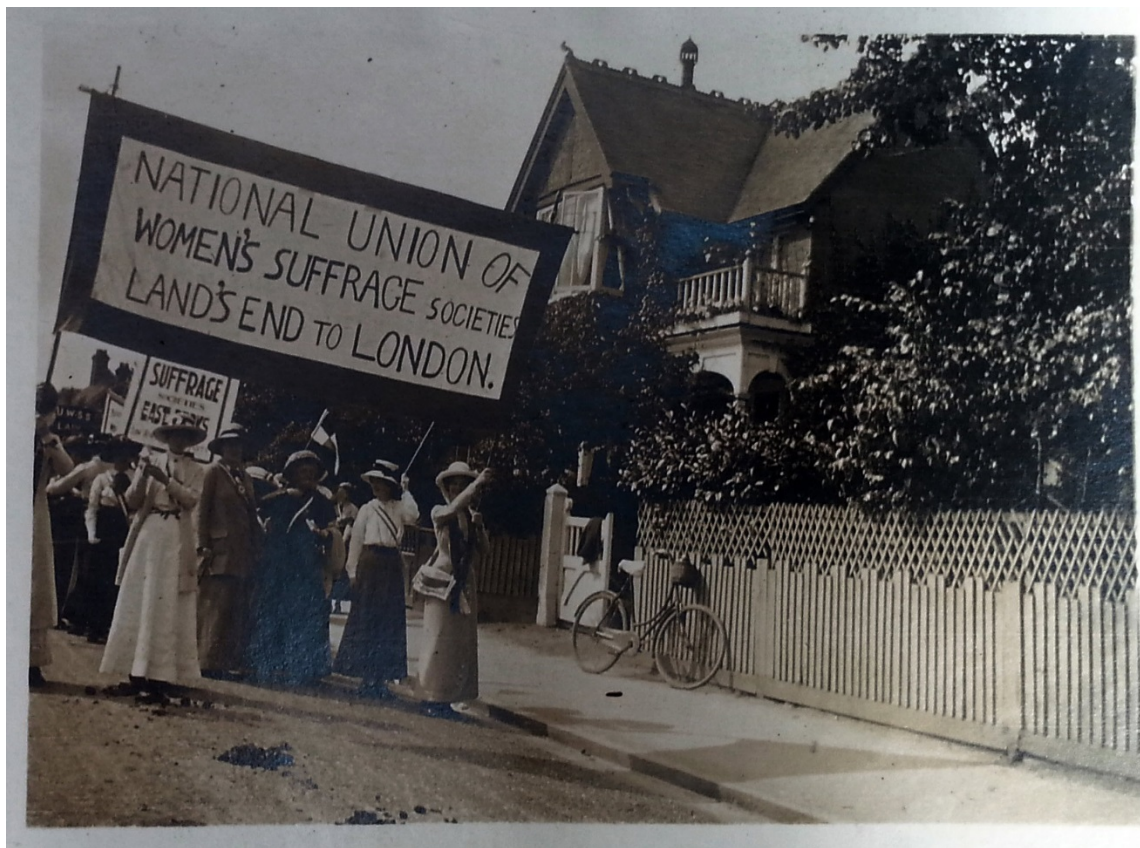 NATIONAL UNION OF
WOMEN'S SUFFRAGE SOCIETIES
LAND'S END TO LONDON.
SUFFRAGE
SOCIETIES
EAST
UWSS